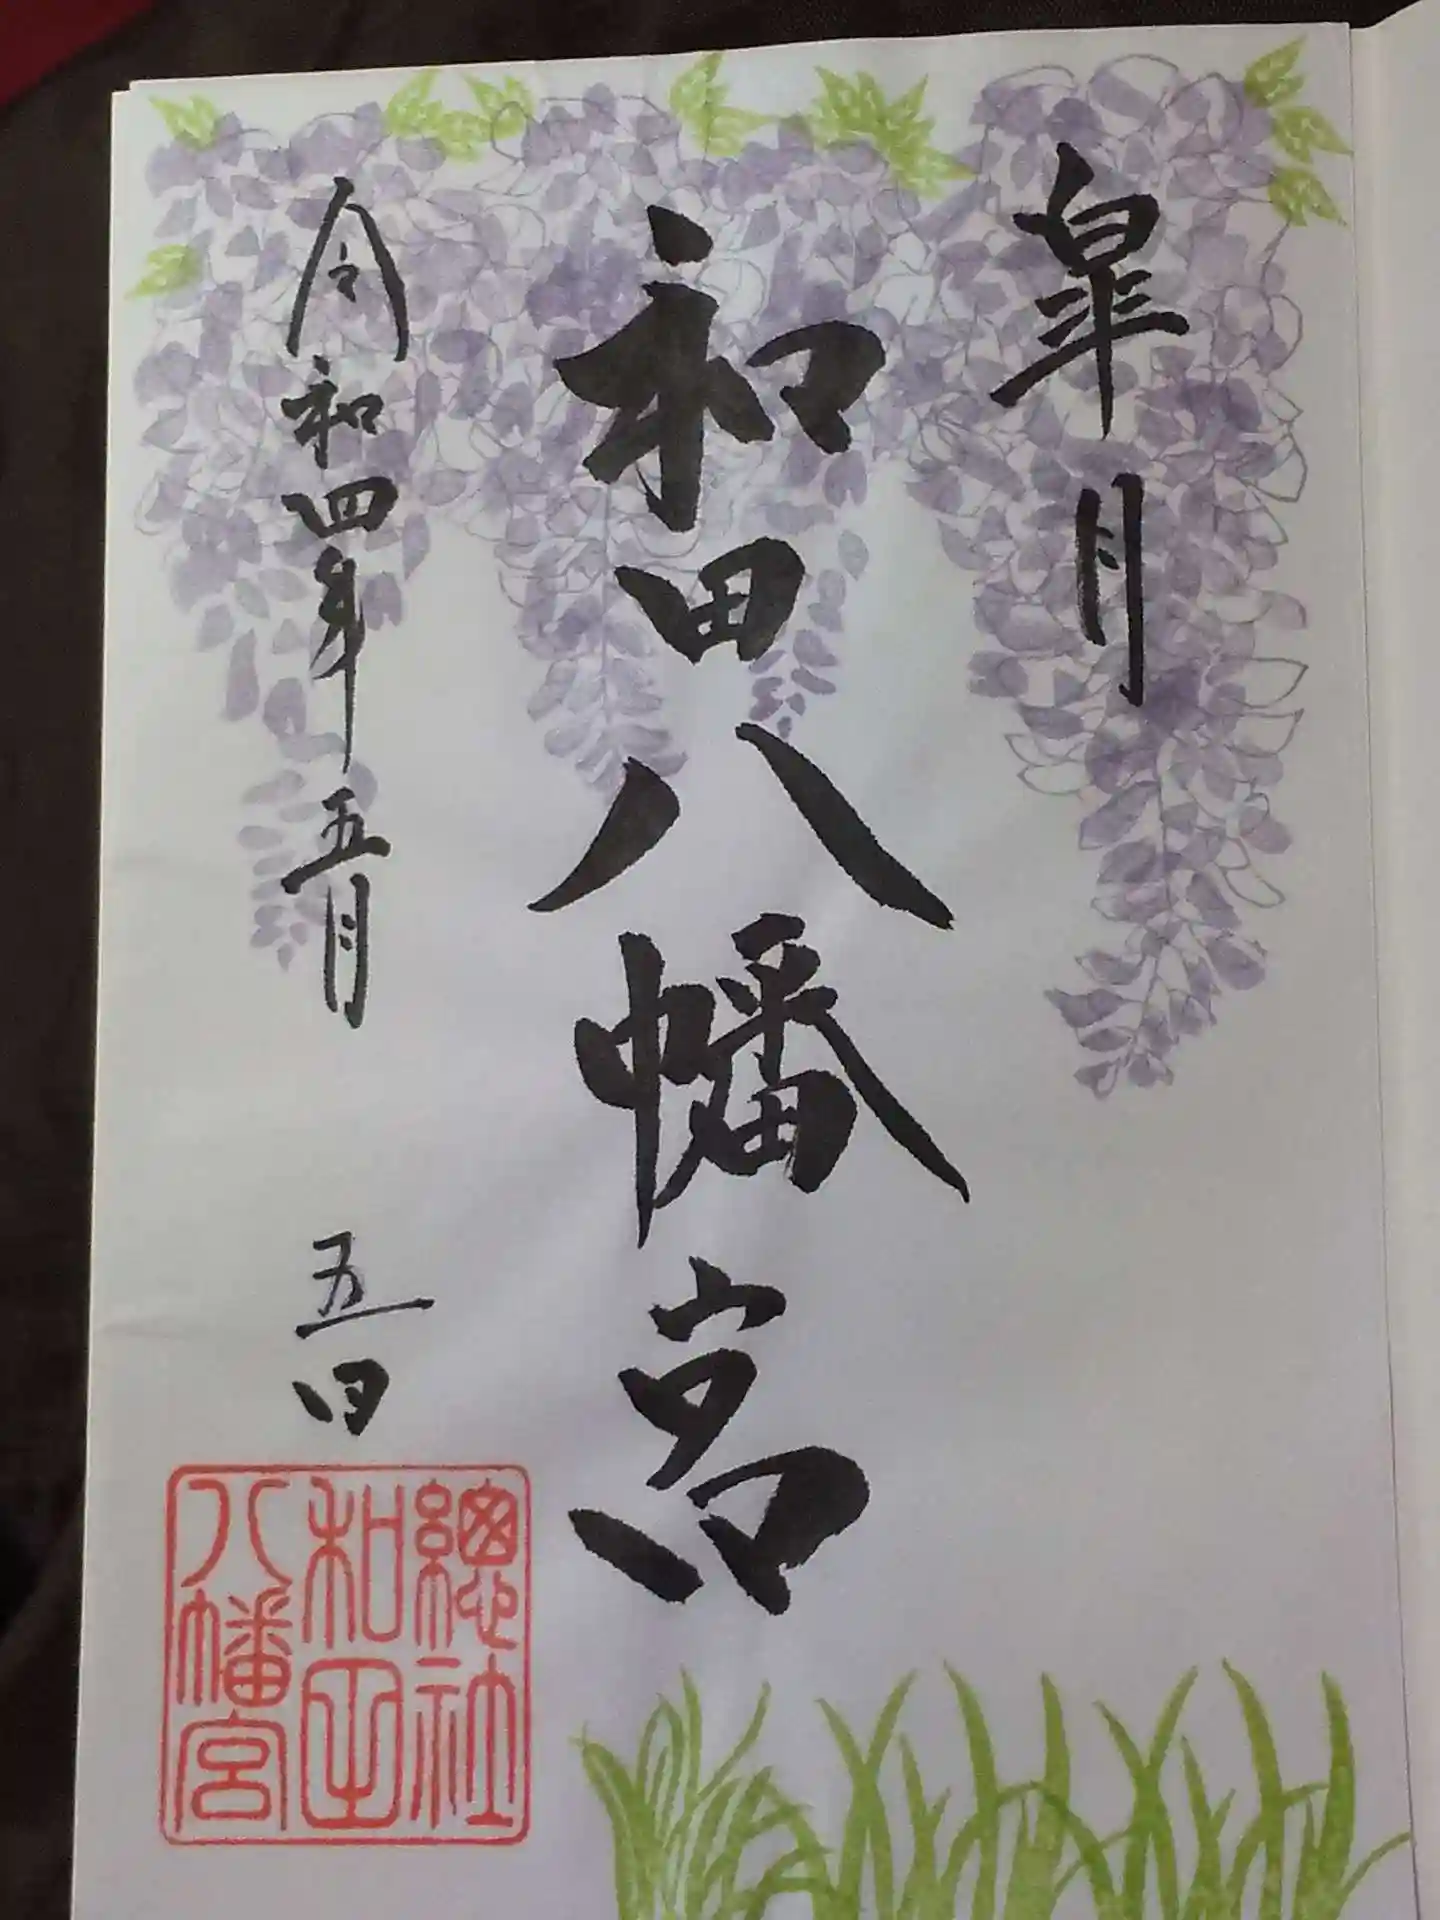 皐月
和田八幡宮
令和四年五月 五日
總社
和田
八幡宮